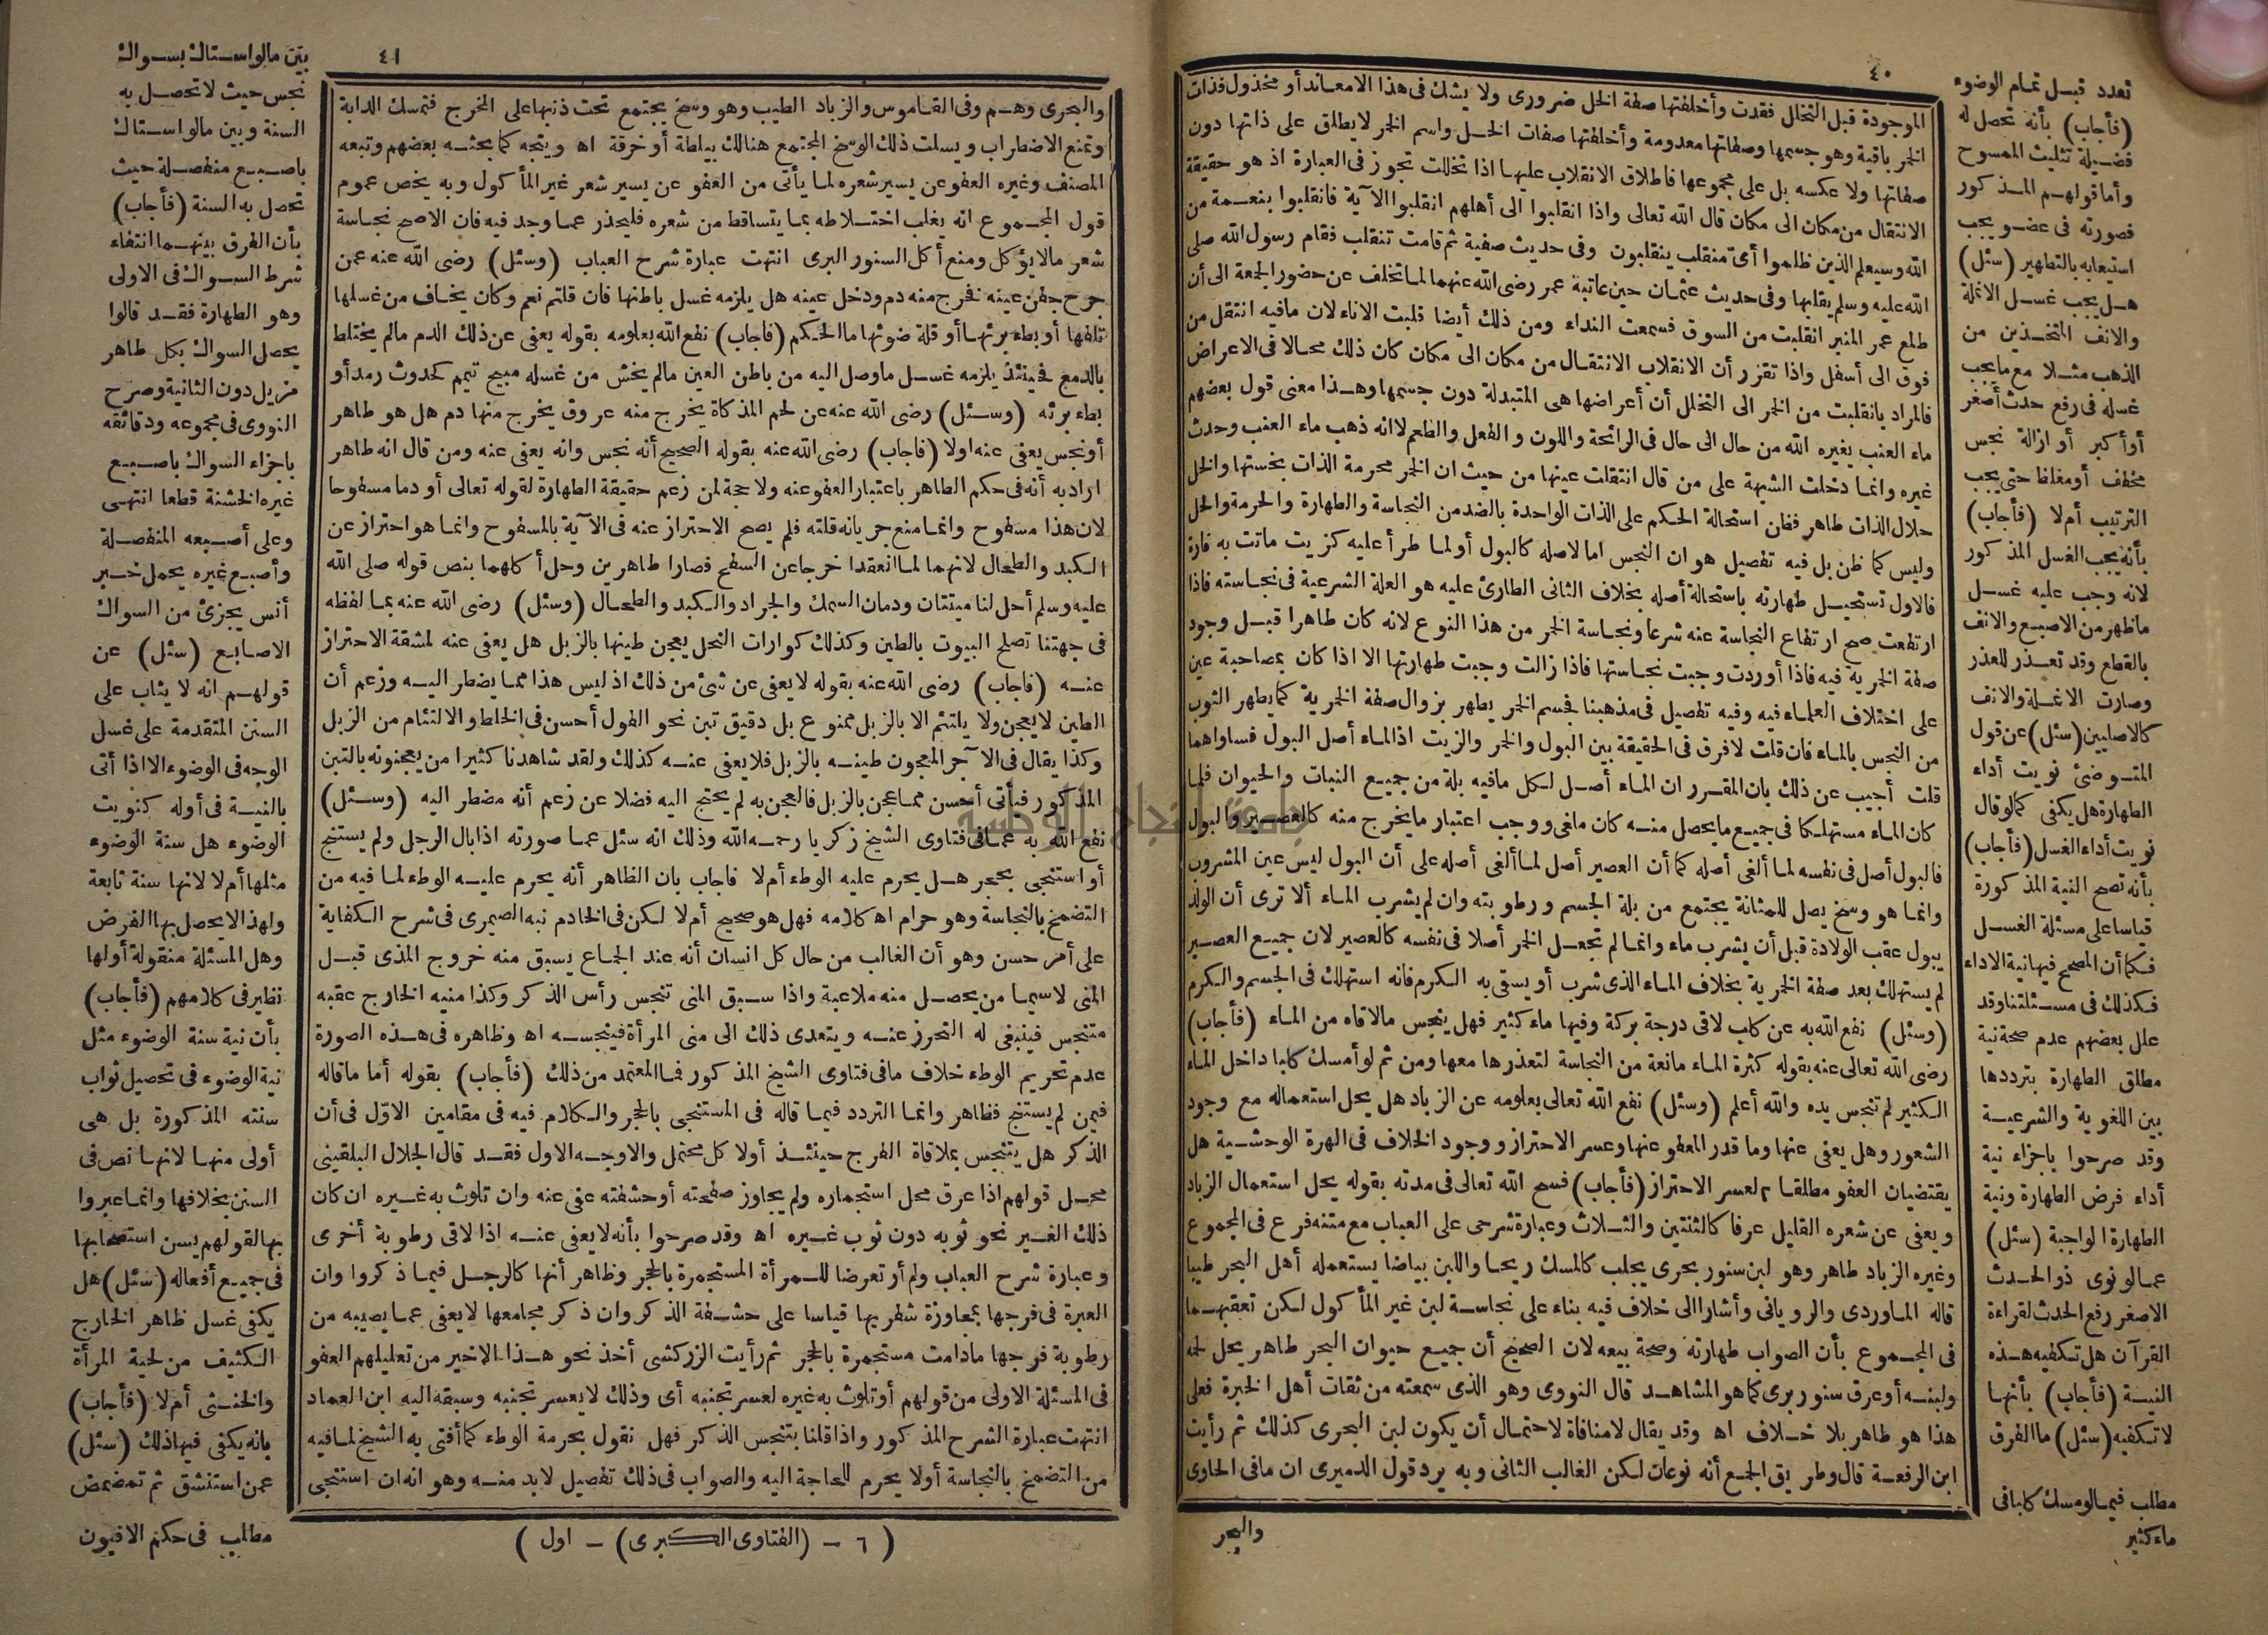 ٤٠
الموجودة قبل التخلل فقدت وأخلفتها صفة الخل ضرورى ولا يشك فى هذا الامعاند أو مخذول فذات
الخمر باقية وهو جسمها وصفاتها معدومة وأخلفتها صفات الخل واسم الخمر لا يطلق على ذاتها دون
صفاتها ولا عكسه بل على مجموعها فاطلاق الانقلاب عليها اذا تخللت تجوز فى العبارة اذ هو حقيقة
الانتقال من مكان الى مكان قال الله تعالى واذا انقلبوا الى أهلهم انقلبوا الآية فانقلبوا بنعمة من
الله وسيعلم الذين ظلموا أى منقلب ينقلبون وفى حديث صفية ثم قامت تنقلب فقام رسول الله صلى
الله عليه وسلم يقلبها وفى حديث عثمان حين عاتبة عمر رضى الله عنهما لما تخلف عن حضور الجمعة الى أن
طلع عمر المنبر انقلبت من السوق فسمعت النداء ومن ذلك أيضا قلبت الاناء لان مافيه انتقل من
فوق الى أسفل واذا تقرر أن الانقلاب الانتقال من مكان الى مكان كان ذلك محالا فى الاعراض
فالمراد بانقلبت من الخمر الى التخلل أن أعراضها هى المتبدلة دون جسمها وهذا معنى قول بعضهم
ماء العنب يغيره الله من حال الى حال فى الرائحة واللون و الفعل والطعم لا انه ذهب ماء العنب وحدث
غيره وانما دخلت الشبهة على من قال انتقلت عينها من حيث ان الخمر محرمة الذات بخستها والخل
حلال الذات طاهر فظن استحالة الحكم على الذات الواحدة بالضد من النجاسة والطهارة والحرمة والحل
وليس كما ظن بل فيه تفصيل هو ان النجس اما لاصله كالبول أو لما طرأ عليه كزيت ماتت به فارة
فالاول تستحيل طهارته باستحالة أصله بخلاف الثانى الطارئ عليه هو العلة الشرعية فى نجاسته فاذا
ارتفعت صح ارتفاع النجاسة عنه شرعا ونجاسة الخمر من هذا النوع لانه كان طاهرا قبل وجود
صفة الخمرية فيه فاذا أوردت وجبت نجاستها فاذا زالت وجبت طهارتها الا اذا كان بمصاحبة عين
على اختلاف العلماء فيه وفيه تفصيل فى مذهبنا فجسم الخمر يطهر بزوال صفة الخمرية كما يطهر الثوب
من النجس بالماء فان قلت لا فرق فى الحقيقة بين البول والخمر والزيت اذ الماء أصل البول فساواهما
قلت أجيب عن ذلك بان المقرر ان الماء أصل لكل مافيه بلة من جميع النبات والحيوان فلما
كان الماء مستهلكا فى جميع ما يحصل منه كان ملغى ووجب اعتبار ما يخرج منه كالعصير والبول
فالبول أصل فى نفسه لما ألغى أصله كما أن العصير أصل لما ألغى أصله على أن البول ليس عين المشروب
وانما هو وسخ يصل للمثانة يجتمع من بلة الجسم ورطوبته وان لم يشرب الماء ألا ترى أن الولد
يبول عقب الولادة قبل أن يشرب ماء وانما لم تجعل الخمر أصلا فى نفسه كالعصير لان جميع العصير
لم يستهلك بعد صفة الخمرية بخلاف الماء الذى شرب أو يسقى به الكرم فانه استهلك فى الجسم والكرم
(وسئل) نفع الله به عن كلب لاقى درجة بركة وفيها ماء كثير فهل ينجس مالاقاه من الماء (فأجاب)
رضى الله تعالى عنه بقوله كثرة الماء مانعة من النجاسة لتعذرها معها ومن ثم لو أمسك كلبا داخل الماء
الكثير لم تنجس يده والله أعلم (وسئل) نفع الله تعالى بعلومه عن الزباد هل يحل استعماله مع وجود
الشعور وهل يعفى عنها وما قدر المعفو عنها وعسر الاحتراز ووجود الخلاف فى الهرة الوحشية هل
يقتضيان العفو مطلقا م لعسر الاحتراز (فأجاب) فسح الله تعالى فى مدته بقوله يحل استعمال الزباد
ويعفى عن شعره القليل عرفا كالثنتين والثلاث وعبارة شرحى على العباب مع متنه فرع فى المجموع
وغيره الزباد طاهر وهو لبن سنور بحرى يجلب كالمسك ريحا واللبن بياضا يستعمله أهل البحر طيبا
قاله الماوردى والرويانى وأشارا الى خلاف فيه بناء على نجاسة لبن غير المأكول لكن تعقبهما
فى المجموع بأن الصواب طهارته وصحة بيعه لان الصحيح أن جميع حيوان البحر طاهر يحل لحمه
ولبنه أو عرق سنور برى كما هو المشاهد قال النووى وهو الذى سمعته من ثقات أهل الخبرة فعلى
هذا هو طاهر بلا خلاف اه وقد يقال لا منافاة لاحتمال أن يكون لبن البحرى كذلك ثم رأيت
ابن الرفعة قال وطريق الجمع أنه نوعان لكن الغالب الثانى وبه يرد قول الدميرى ان مافى الحاوى
والبحر
تعدد قبل تمام الوضوء
(فأجاب) بأنه تحصل له
فضيلة تثليث الممسوح
وأما قولهم المذكور
فصورته فى عضو يجب
استيعابه بالتطهير (سئل)
هل يجب غسل الانملة
والانف المتخذين من
الذهب مثلا مع ما يجب
غسله فى رفع حدث أصغر
أو أكبر أو ازالة نجس
مخفف أو مغلظ حتى يجب
الترتيب أم لا (فأجاب)
بأنه يجب الغسل المذكور
لانه وجب عليه غسل
ماظهر من الاصبع والانف
بالقطع وقد تعذر للعذر
وصارت الانملة والانف
كالاصليين (سئل) عن قول
المتوضئ نويت أداء
الطهارة هل يكفى كما لو قال
نويت أداء الغسل (فأجاب)
بأنه تصح النية المذكورة
قياسا على مسئلة الغسل
فكما أن المصحح فيها نية الاداء
فكذلك فى مسئلتنا وقد
علل بعضهم عدم صحة نية
مطلق الطهارة بترددها
بين اللغوية والشرعية
وقد صرحوا باجزاء نية
أداء فرض الطهارة ونية
الطهارة الواجبة (سئل)
عما لو نوى ذو الحدث
الاصغر رفع الحدث لقراءة
القرآن هل تكفيه هذه
النية (فأجاب) بأنها
لا تكفيه (سئل) ما الفرق
مطلب فيما لو مسك كلبا فى
ماء كثير
٤١
والبحرى وهم وفى القاموس والزباد الطيب وهو وسخ يجتمع تحت ذنبها على المخرج فتمسك الدابة
وتمنع الاضطراب ويسلت ذلك الوسخ المجتمع هنالك بيلطة أو خرقة اه ويتجه كما بحثه بعضهم وتبعه
المصنف وغيره العفو عن يسير شعره لما يأتى من العفو عن يسير شعر غير المأكول وبه يخص عموم
قول المجموع انه يغلب اختلاطه بما يتساقط من شعره فليحذر عما وجد فيه فان الاصح نجاسة
شعر مالا يؤكل ومنع أكل السنور البرى انتهت عبارة شرح العباب (وسئل) رضى الله عنه عمن
جرح جفن عينه فخرج منه دم ودخل عينه هل يلزمه غسل باطنها فان قلتم نعم وكان يخاف من غسلها
تلفها أو بطء برئها أو قلة ضوئها ما الحكم (فأجاب) نفع الله بعلومه بقوله يعفى عن ذلك الدم مالم يختلط
بالدمع فحينئذ يلزمه غسل ما وصل اليه من باطن العين مالم يخش من غسله مبيح تيمم كحدوث رمد أو
بطء برئه (وسئل) رضى الله عنه عن لحم المذكاة يخرج منه عروق يخرج منها دم هل هو طاهر
أو نجس يعفى عنه اولا (فأجاب) رضى الله عنه بقوله الصحيح أنه نجس وانه يعفى عنه ومن قال انه طاهر
اراد به أنه فى حكم الطاهر باعتبار العفو عنه ولا حجة لمن زعم حقيقة الطهارة لقوله تعالى أو دما مسفوحا
لان هذا مسفوح وانما منع جريانه قلته فلم يصح الاحتراز عنه فى الآية بالمسفوح وانما هو احتراز عن
الكبد والطحال لانهما لما انعقدا خرجا عن السفح فصارا طاهرين وحل أكلهما بنص قوله صلى الله
عليه وسلم أحل لنا ميتتان ودمان السمك والجراد والكبد والطحال (وسئل) رضى الله عنه بما لفظه
فى جهتنا تصلح البيوت بالطين وكذلك كوارات النحل يعجن طينها بالزبل هل يعفى عنه لمشقة الاحتراز
عنه (فأجاب) رضى الله عنه بقوله لا يعفى عن شئ من ذلك اذ ليس هذا مما يضطر اليه وزعم أن
الطين لا يعجن ولا يلتئم الا بالزبل ممنوع بل دقيق تبن نحو الفول أحسن فى الخلط والالتئام من الزبل
وكذا يقال فى الآجر المعجون طينه بالزبل فلا يعفى عنه كذلك ولقد شاهدنا كثيرا من يعجنونه بالتبن
المذكور فيأتى أحسن مما عجن بالزبل فالعجن به لم يحتج اليه فضلا عن زعم أنه مضطر اليه (وسئل)
نفع الله به عما فى فتاوى الشيخ زكريا رحمه الله وذلك انه سئل عما صورته اذا بال الرجل ولم يستنج
أو استنجى بحجر هل يحرم عليه الوطء أم لا فاجاب بان الظاهر أنه يحرم عليه الوطء لما فيه من
التضمخ بالنجاسة وهو حرام اه كلامه فهل هو صحيح أم لا لكن فى الخادم نبه الصيمرى فى شرح الكفاية
على أمر حسن وهو أن الغالب من حال كل انسان أنه عند الجماع يسبق منه خروج المذى قبل
المنى لاسيما من يحصل منه ملاعبة واذا سبق المنى تنجس رأس الذكر وكذا منيه الخارج عقبه
متنجس فينبغى له التحرز عنه ويتعدى ذلك الى منى المرأة فينجسه اه وظاهره فى هذه الصورة
عدم تحريم الوطء خلاف مافى فتاوى الشيخ المذكور فما المعتمد من ذلك (فأجاب) بقوله أما ماقاله
فيمن لم يستنج فظاهر وانما التردد فيما قاله فى المستنجى بالحجر والكلام فيه فى مقامين الاول فى أن
الذكر هل يتنجس بملاقاة الفرج حينئذ أولا كل محتمل والاوجه الاول فقد قال الجلال البلقينى
محل قولهم اذا عرق محل استجماره ولم يجاوز صفحته أو حشفته عفى عنه وان تلوث به غيره ان كان
ذلك الغير نحو ثوبه دون ثوب غيره اه وقد صرحوا بأنه لا يعفى عنه اذا لاقى رطوبة أخرى
وعبارة شرح العباب ولم أر تعرضا للمرأة المستجمرة بالحجر وظاهر أنها كالرجل فيما ذكروا وان
العبرة فى فرجها بمجاوزة شطريها قياسا على حشفة الذكر وان ذكر مجامعها لا يعفى عما يصيبه من
رطوبة فرجها مادامت مستجمرة بالحجر ثم رأيت الزركشى أخذ نحو هذا الاخير من تعليلهم العفو
فى المسئلة الاولى من قولهم أو تلوث به غيره لعسر تجنبه أى وذلك لا يعسر تجنبه وسبقه اليه ابن العماد
انتهت عبارة الشرح المذكور واذا قلنا بتنجس الذكر فهل نقول بحرمة الوطء كما أفتى به الشيخ لما فيه
من التضمخ بالنجاسة أولا يحرم للحاجة اليه والصواب فى ذلك تفصيل لابد منه وهو انه ان استنجى
( ٦ – (الفتاوى الكبرى) – اول )
بين مالو استاك بسواك
نجس حيث لا تحصل به
السنة وبين مالو استاك
باصبع منفصلة حيث
تحصل به السنة (فأجاب)
بأن الفرق بينهما انتفاء
شرط السواك فى الاولى
وهو الطهارة فقد قالوا
يحصل السواك بكل طاهر
مزيل دون الثانية وصرح
النووى فى مجموعه ودقائقه
باجزاء السواك باصبع
غيره الخشنة قطعا انتهى
وعلى أصبعه المنفصلة
وأصبع غيره يحمل خبر
أنس يجزئ من السواك
الاصابع (سئل) عن
قولهم انه لا يثاب على
السنن المتقدمة على غسل
الوجه فى الوضوء الا اذا أتى
بالنية فى أوله كنويت
الوضوء هل سنة الوضوء
مثلها أم لا لانها سنة تابعة
ولهذا لا يحصل بها الفرض
وهل المسئلة منقولة أو لها
نظير فى كلامهم (فأجاب)
بأن نية سنة الوضوء مثل
نية الوضوء فى تحصيل ثواب
سننه المذكورة بل هى
أولى منها لانها نص فى
السنن بخلافها وانما عبروا
بها لقولهم يسن استصحابها
فى جميع أفعاله (سئل) هل
يكفى غسل ظاهر الخارج
الكثيف من لحية المرأة
والخنثى أم لا (فأجاب)
بانه يكفى فيها ذلك (سئل)
عمن استنشق ثم تمضمض
مطلب فى حكم الافيون
جامعة النجاح الوطنية